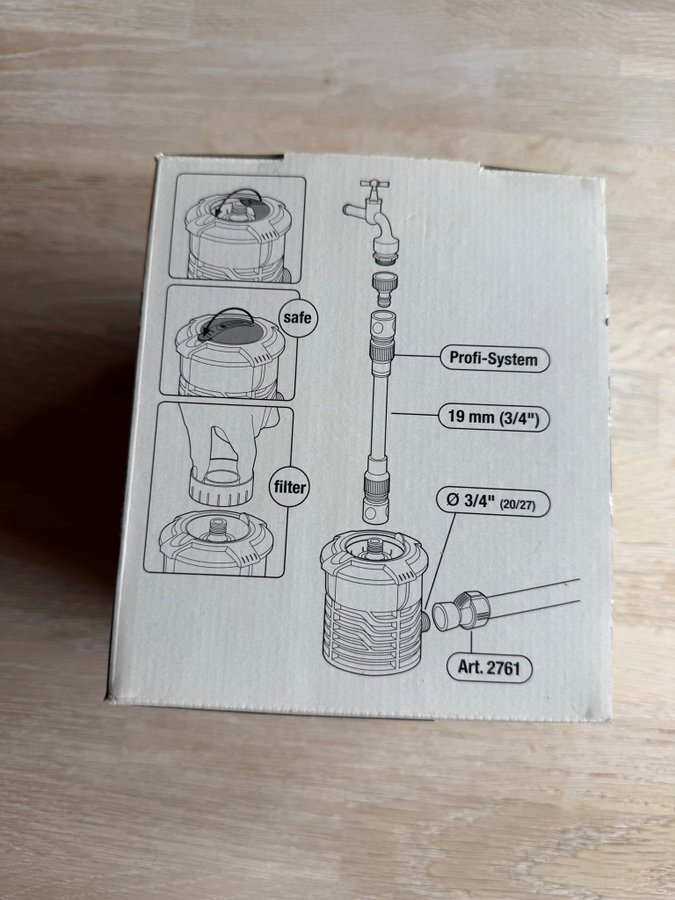 safe
filter
Profi-System
19 mm (3/4")
Ø 3/4" (20/27)
Art. 2761